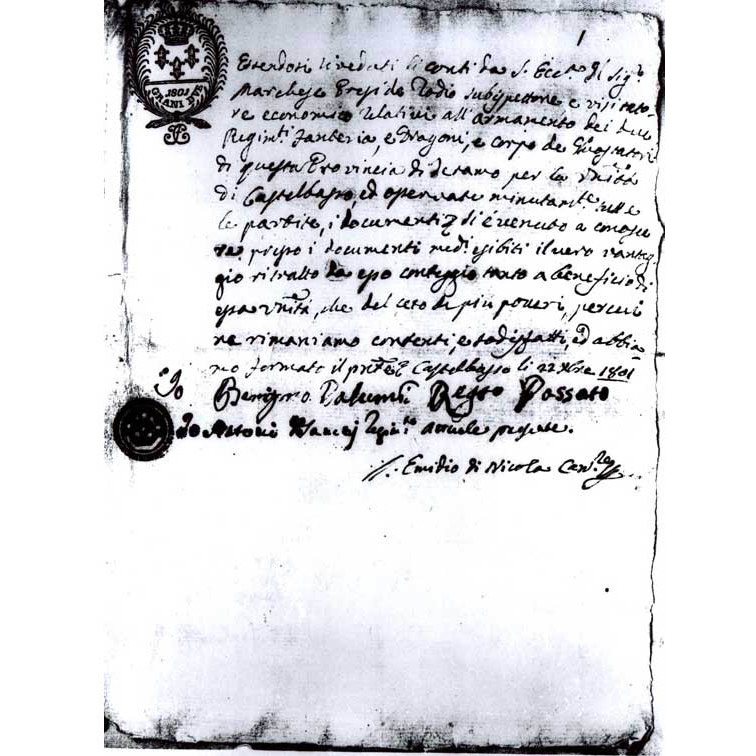 1801
GRANI
1
Essendosi riveduti li conti da S. Ecc.za Il Sig.r
Marchese Presid.e Rodio subispettore e visitato=
re economico relativi all'armamento dei due
Regim.ti fanteria, e Dragoni, e corpo de
di questa Provincia di Teramo per la Vniv.tà
di Castelbasso, ed osservate minutam.te tutte
le partite, i documenti, si é venuto a conosce
re presso i documenti medi esibiti il vero vantag
gio ritratto da esso conteggio tanto a beneficio di
essa Vniv.tà, che del ceto di piu poveri, percui
ne rimaniamo contenti, e sodisfatti, ed abbia=
mo formato il pnte Castelbasso li 22 Xbre 1801
Io Benigno Palumbi Reg.to Passato
Io Antonio Regim.to attuale
Emidio di Nicola Can.re